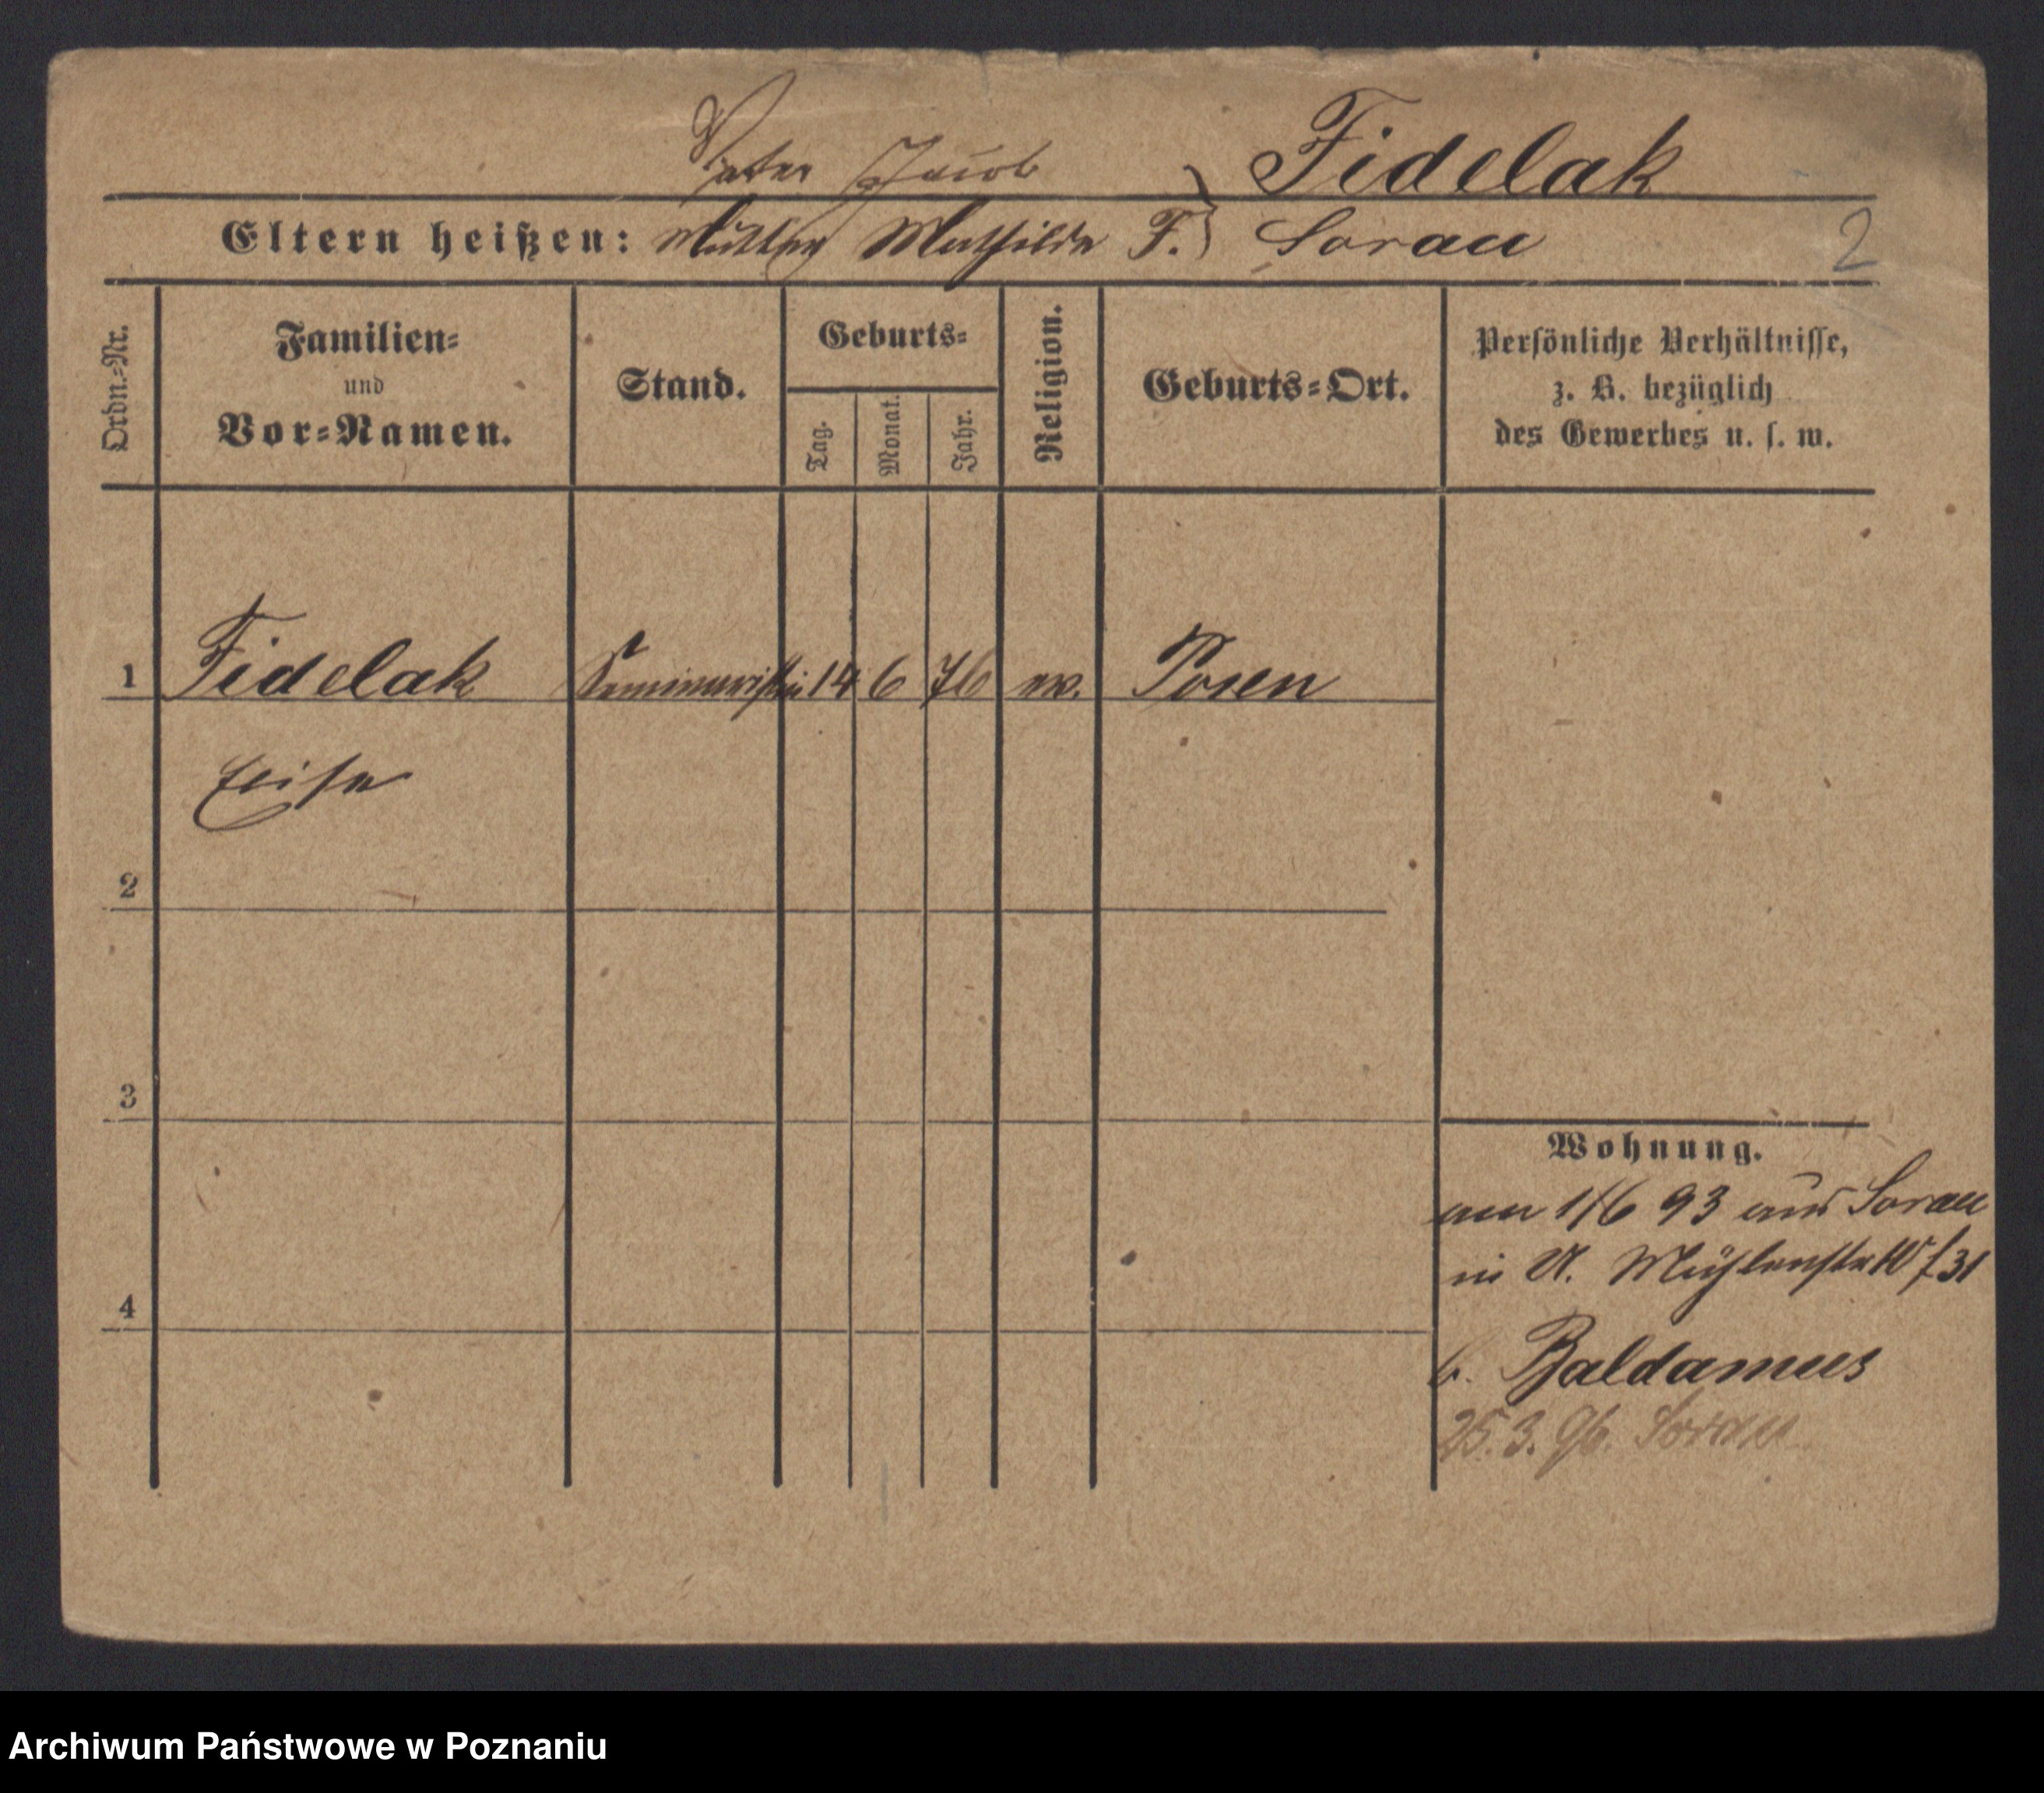 Vater Jacob } Fidelak
Eltern heißen: Mutter Mathilde F. } Sorau 2
Ordn.-Nr.
Familien-
und
Vor-Namen.
Stand.
Geburts-
Tag.
Monat.
Jahr.
Religion.
Geburts-Ort.
Persönliche Verhältnisse,
z. B. bezüglich
des Gewerbes u. s. w.
1 Fidelak Seminaristin 14 6 76 ev. Posen
2
3
4
Wohnung.
1/6 93 aus Sorau
in Mühlenstr 31
b. Baldamus
25. 3. 96. Sorau
Archiwum Państwowe w Poznaniu